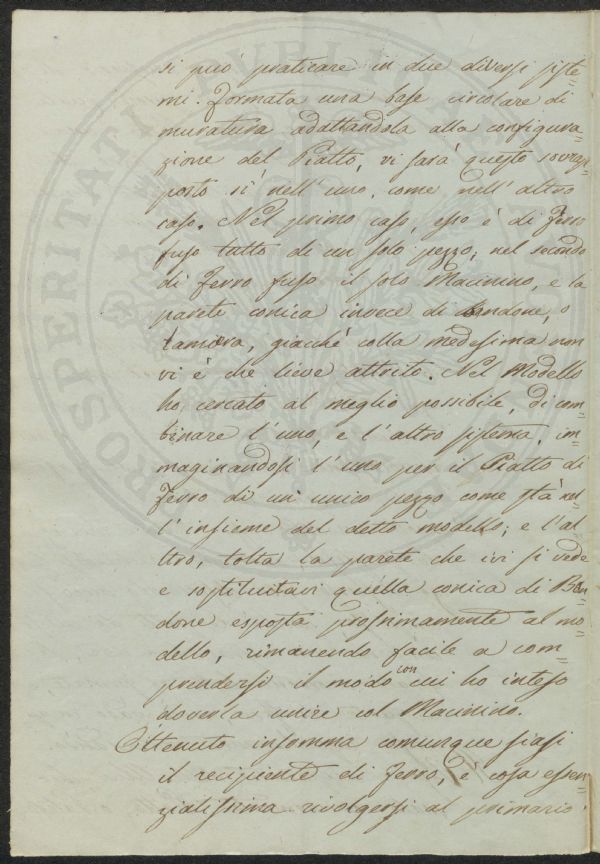 si può praticare in due diversi siste=
mi. Formata una base circolare di
muratura adattandola alla configura=
zione del Piatto, vi sarà questo sovrap=
posto sì nell'uno, come nell'altro
caso. Nel primo caso, esso è di Ferro
fuso tutto di un solo pezzo; nel secondo
di Ferro fuso il solo Macinino, e la
parete conica invece di bandone, o
lamiera, giacchè colla medesima non
vi è che lieve attrito. Nel Modello
ho cercato al meglio possibile, di com=
binare l'uno, e l'altro sistema, im=
maginandosi l'uno per il Piatto di
Ferro di un'unico pezzo come stà nel=
l'insieme del detto modello; e l'al=
tro, tolta la parete che ivi si vede
e sostituitavi quella conica di Ban=
done esposta prossimamente al mo=
dello, rimanendo facile a com=
prendersi il modo con cui ho inteso
doverla unire col Macinino.
Ottenuto insomma comunque siasi
il recipiente di Ferro, è cosa essen=
zialissima rivolgersi al primario
PROSPERITATI PVBLICAE